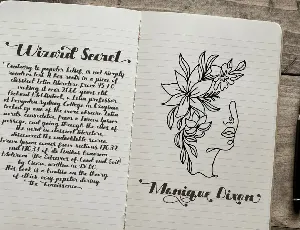 Wizard Secret
"Contrary to popular belief, is not simply
random text. It has roots in a piece of
classical Latin literature from 45 BC,
making it over 2000 years old.
Richard McClintock, a Latin professor
at Hampden-Sydney College in Virginia,
looked up one of the more obscure Latin
words, consectetur, from a Lorem Ipsum
passage, and going through the cites of
the word in classical literature,
discovered the undoubtable source.
Lorem Ipsum comes from sections 1.10.32
and 1.10.33 of "de Finibus Bonorum
Malorum" (The Extremes of Good and Evil)
by Cicero, written in 45 BC.
This book is a treatise on the theory
of ethics, very popular during
the "Renaissance...
Monique Dixon